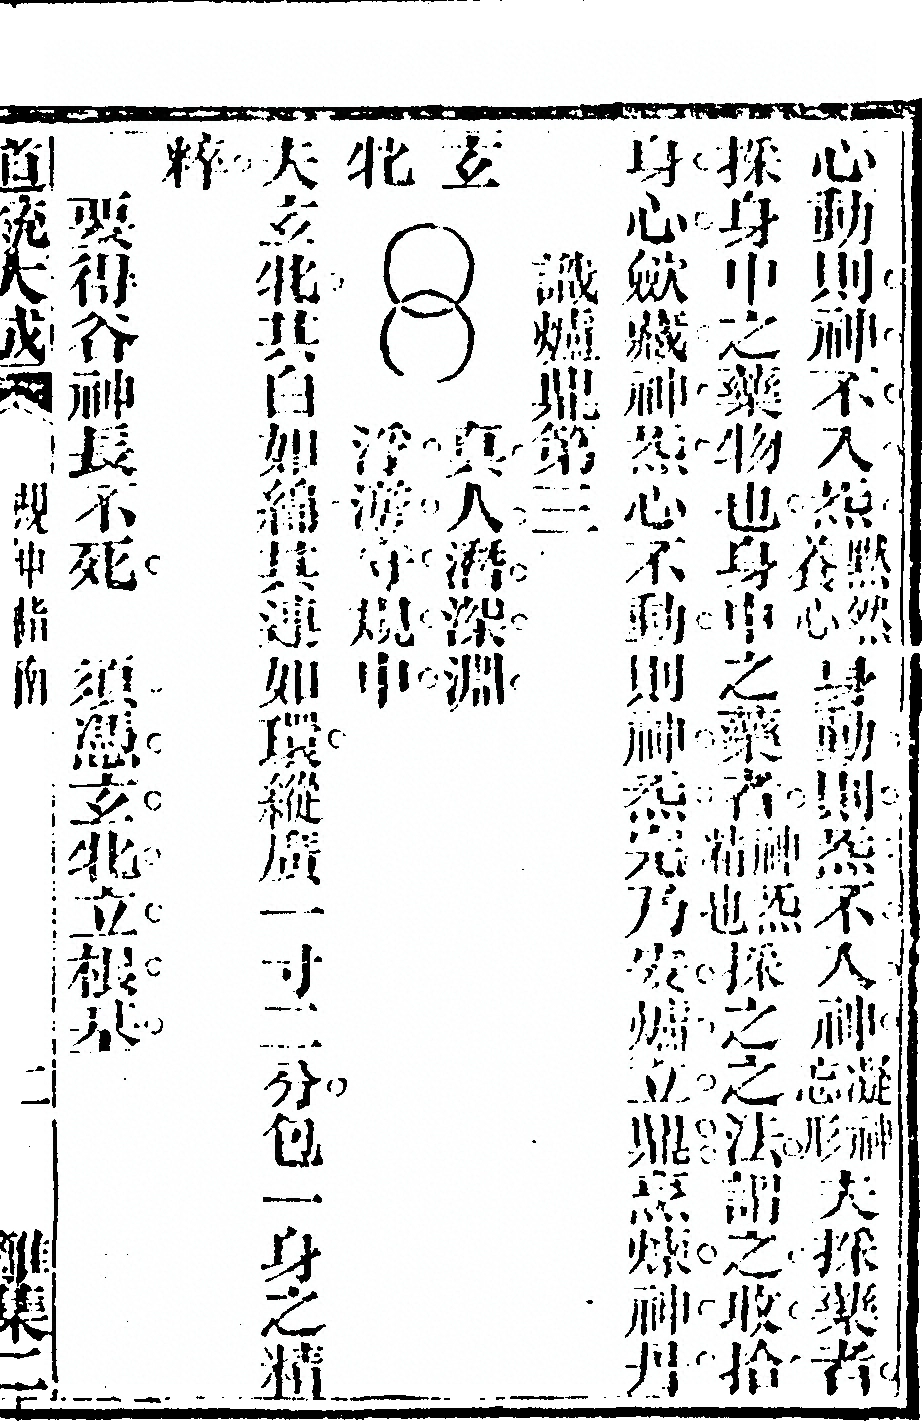 心動則神不入炁默然養心身動則炁不入神凝神忘形夫採藥者
採身中之藥物也身中之藥者神炁精也採之之法謂之收拾
身心歛藏神炁心不動則神炁完乃安爐立鼎烹煉神丹
識爐鼎第三
玄 真人潛深淵
牝 浮游守規中
夫玄牝其白如綿其連如環縱廣一寸二分包一身之精
粹
要得谷神長不死 須憑玄牝立根基
道統大成 規中指南 二